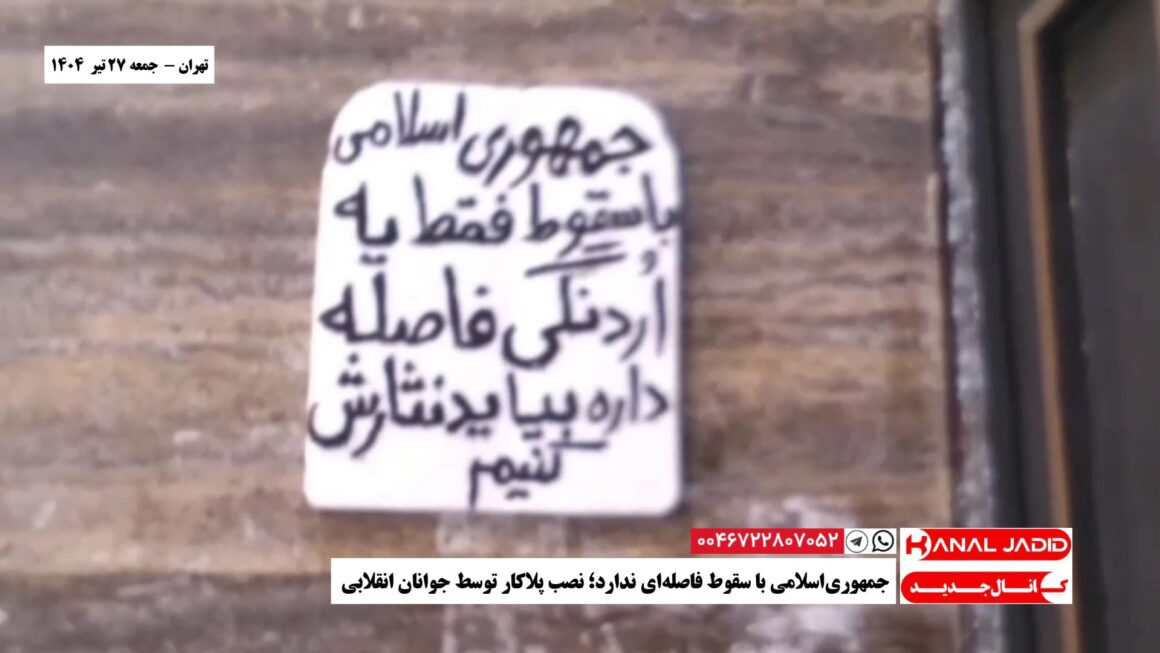 تهران – جمعه ۲۷ تیر ۱۴۰۴
جمهوری اسلامی
با سقوط فقط یه
اُردنگی فاصله
داره بیاید نثارش
کنیم
۰۰۴۶۷۲۲۸۰۷۰۵۲
KANAL JADID
کانال جدید
جمهوری‌اسلامی با سقوط فاصله‌ای ندارد؛ نصب پلاکار توسط جوانان انقلابی